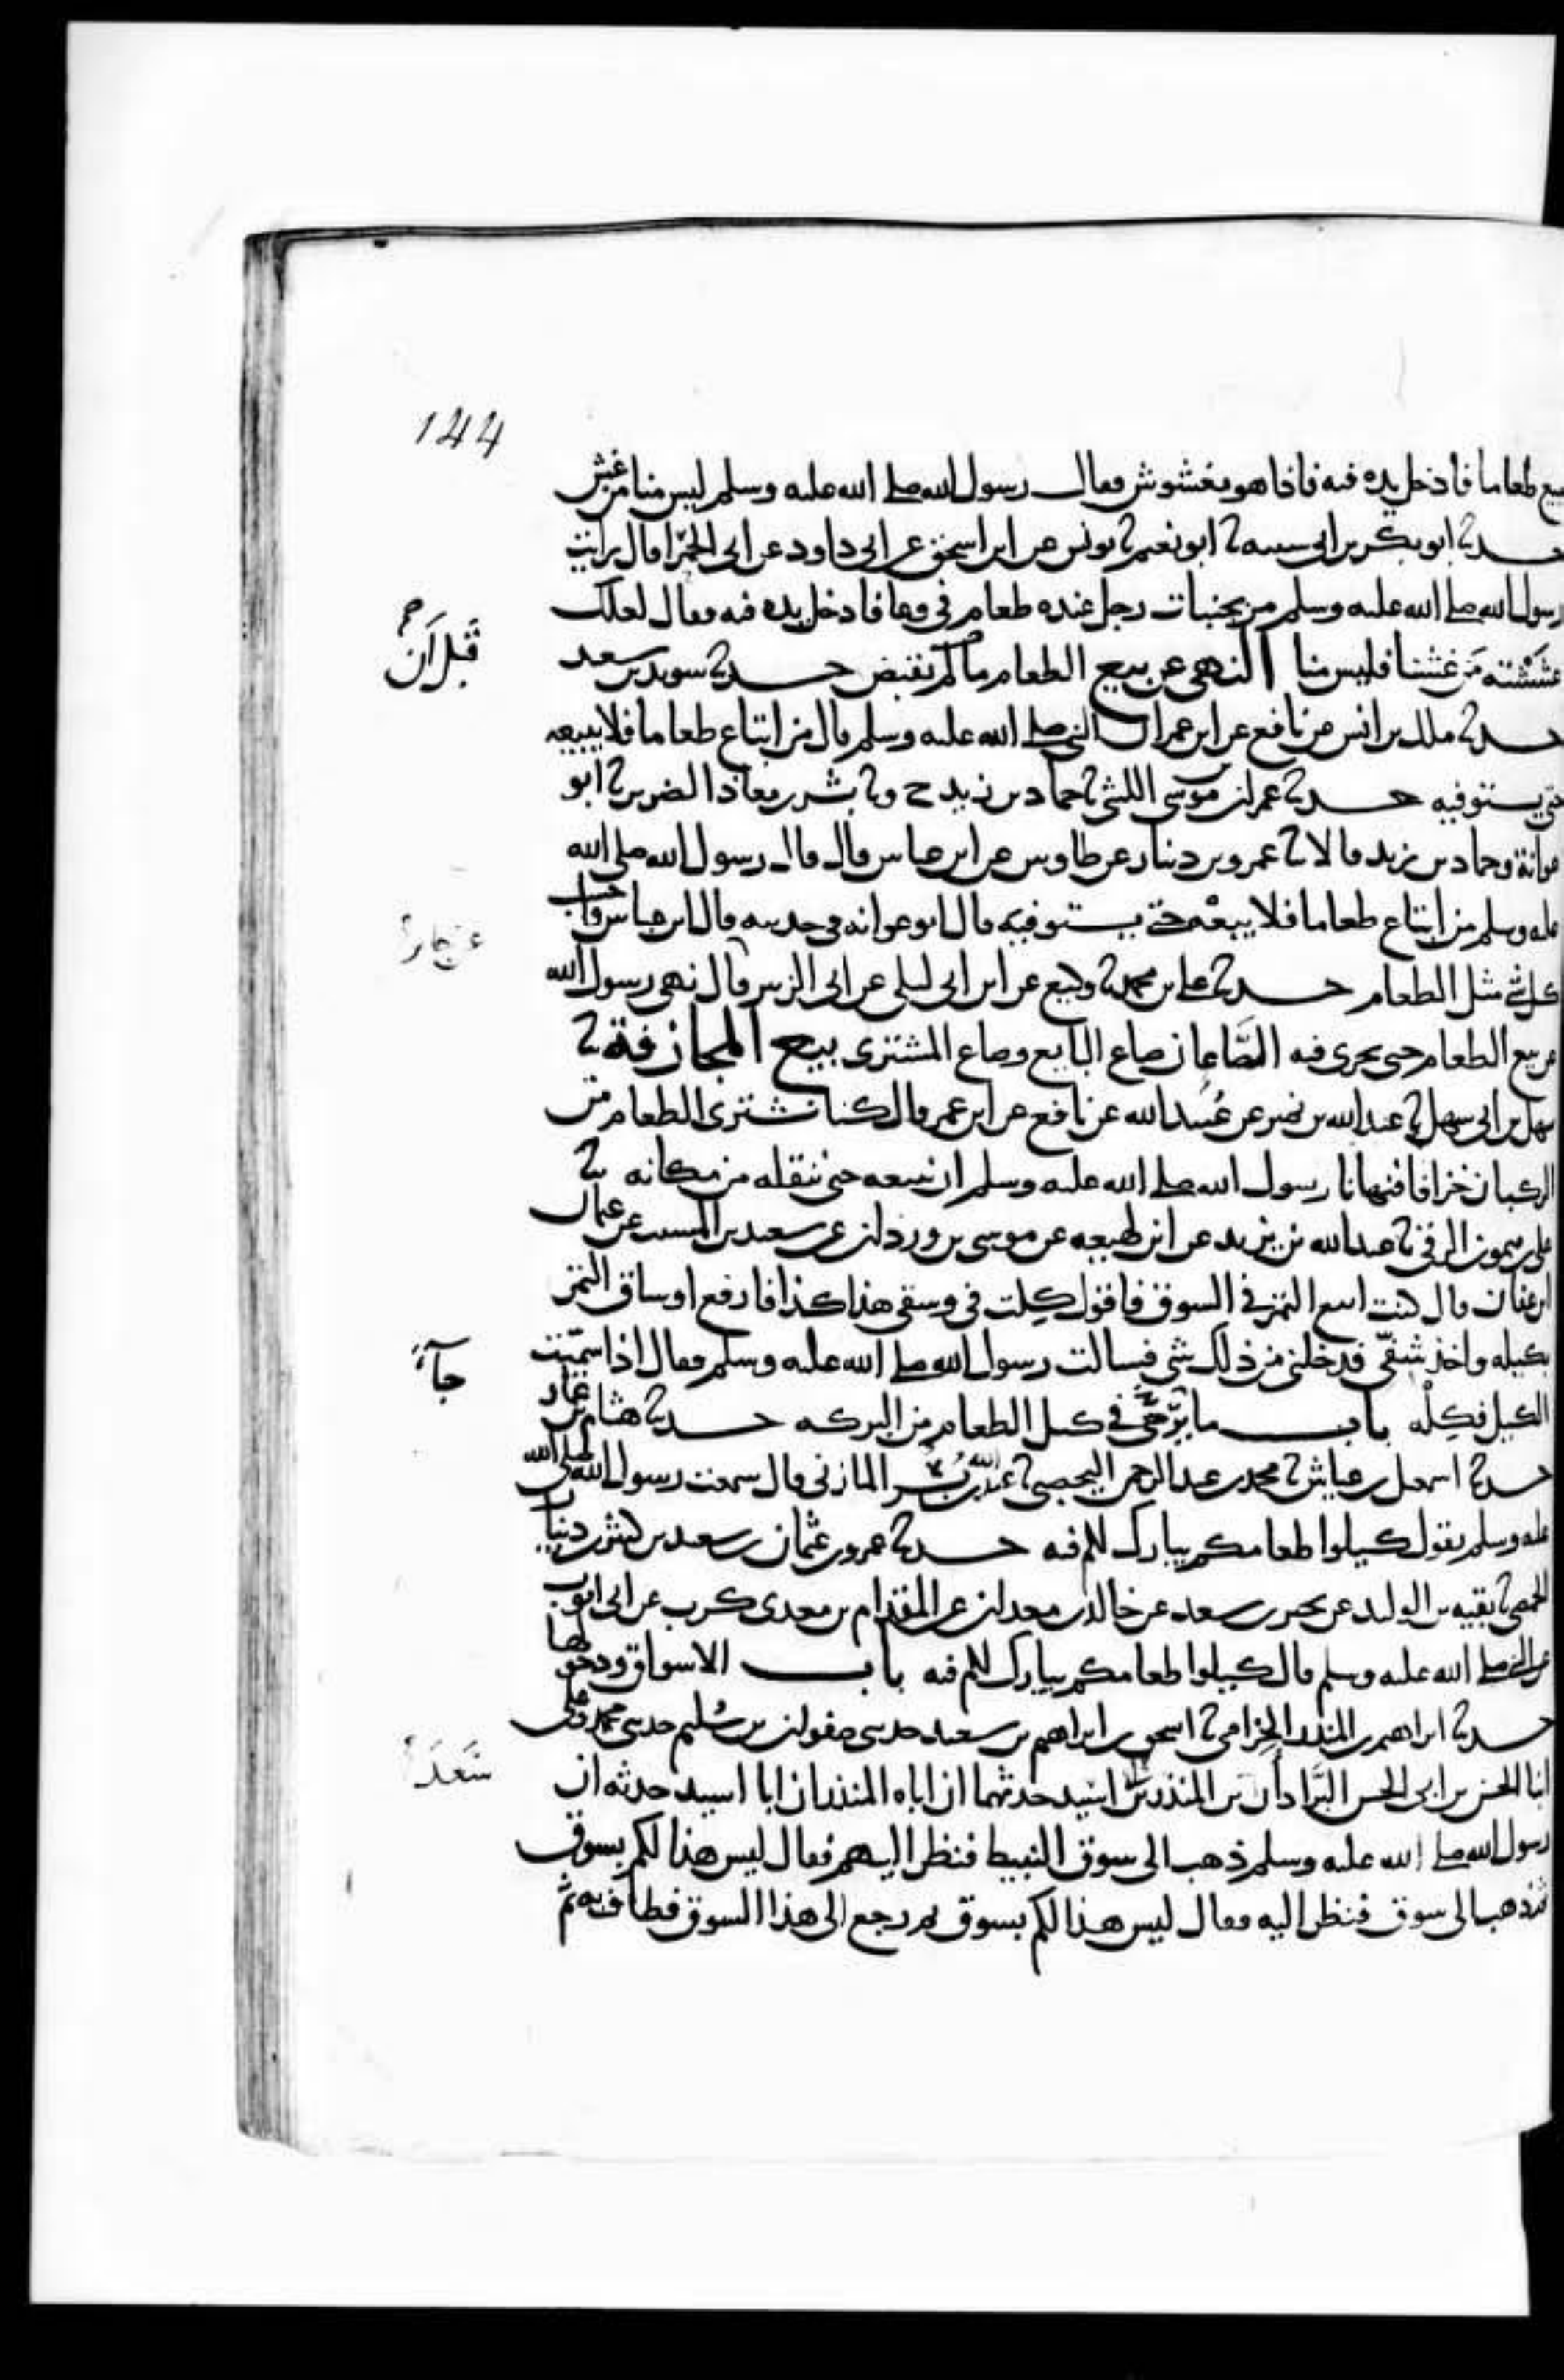 144
يبيع طعاما فادخل يده فيه فاذا هو مغشوش فقال رسول الله صلى الله عليه وسلم ليس منا من غش
حدثنا ابو بكر بن ابي شيبة ثنا ابو نعيم ثنا يونس عن ابن اسحق عن ابي داود عن ابي الحمرا قال رايت
رسول الله صلى الله عليه وسلم مر بجنبات رجل عنده طعام في وعا فادخل يده فيه وقال لعلك
غششته من غشنا فليس منا النهي عن بيع الطعام ما لم يقبض حدثنا سويد بن سعد
قبل ان
حدثنا ملك بن انس عن نافع عن ابن عمر ان النبي صلى الله عليه وسلم قال من ابتاع طعاما فلا يبيعه
حتى يستوفيه حدثنا عمران بن موسى الليثي ثنا حماد بن زيد ح وثنا بشر بن معاذ الضرير ثنا ابو
عوانة وحماد بن زيد قالا ثنا عمرو بن دينار عن طاوس عن ابن عباس قال قال رسول الله صلى الله
عليه وسلم من ابتاع طعاما فلا يبعه حتى يستوفيه قال ابو عوانه في حديثه قال ابن عباس واحسب
كل شي مثل الطعام حدثنا علي بن محمد ثنا وكيع عن ابن ابي ليلى عن ابي الزبير قال نهى رسول الله
عن جابر
عن بيع الطعام حتى يجرى فيه الصاعان صاع البايع وصاع المشترى بيع المجازفة ثنا
سهل بن ابي سهل ثنا عبد الله بن نمير عن عبيد الله عن نافع عن ابن عمر قال كنا نشترى الطعام من
الركبان جزافا فنهانا رسول الله صلى الله عليه وسلم ان نبيعه حتى ننقله من مكانه ثنا
علي بن ميمون الرقي ثنا عبد الله بن يزيد عن ابن لهيعه عن موسى بن وردان عن سعيد بن المسيب عن عثمان
ابن عفان قال كنت ابيع التمر في السوق فاقول كلت في وسقي هذا كذا فادفع اوساق التمر
بكيله واخذ شفي فدخلني من ذلك شي فسالت رسول الله صلى الله عليه وسلم فقال اذا سميت
الكيل فكله باب ما يرجى في كيل الطعام من البركه حدثنا هشام بن عمار
جاء
حدثنا اسمعيل بن عياش ثنا محمد بن عبد الرحمن اليحصبي ثنا عبد الله بن بسر المازني قال سمعت رسول الله صلى الله
عليه وسلم يقول كيلوا طعامكم يبارك لكم فيه حدثنا عمرو بن عثمان بن سعيد بن كثير بن دينار
الحمصي ثنا بقيه بن الوليد عن بحير بن سعد عن خالد بن معدان عن المقدام بن معدى كرب عن ابي ايوب
عن النبي صلى الله عليه وسلم قال كيلوا طعامكم يبارك لكم فيه باب الاسواق ودخولها
حدثنا ابراهيم بن المنذر الحزامي ثنا اسحق بن ابراهيم بن سعيد حدثني صفوان بن سليم حدثني محمد وعلي
ابنا الحسن بن ابي الحسن البراد ان بن المنذر بن اسيد حدثهما ان اباه المنذر ان ابا اسيد حدثه ان
رسول الله صلى الله عليه وسلم ذهب الى سوق النبيط فنظر اليهم فقال ليس هذا لكم بسوق
ثم ذهب الى سوق فنظر اليه فقال ليس هذا لكم بسوق ثم رجع الى هذا السوق فطاف به ثم